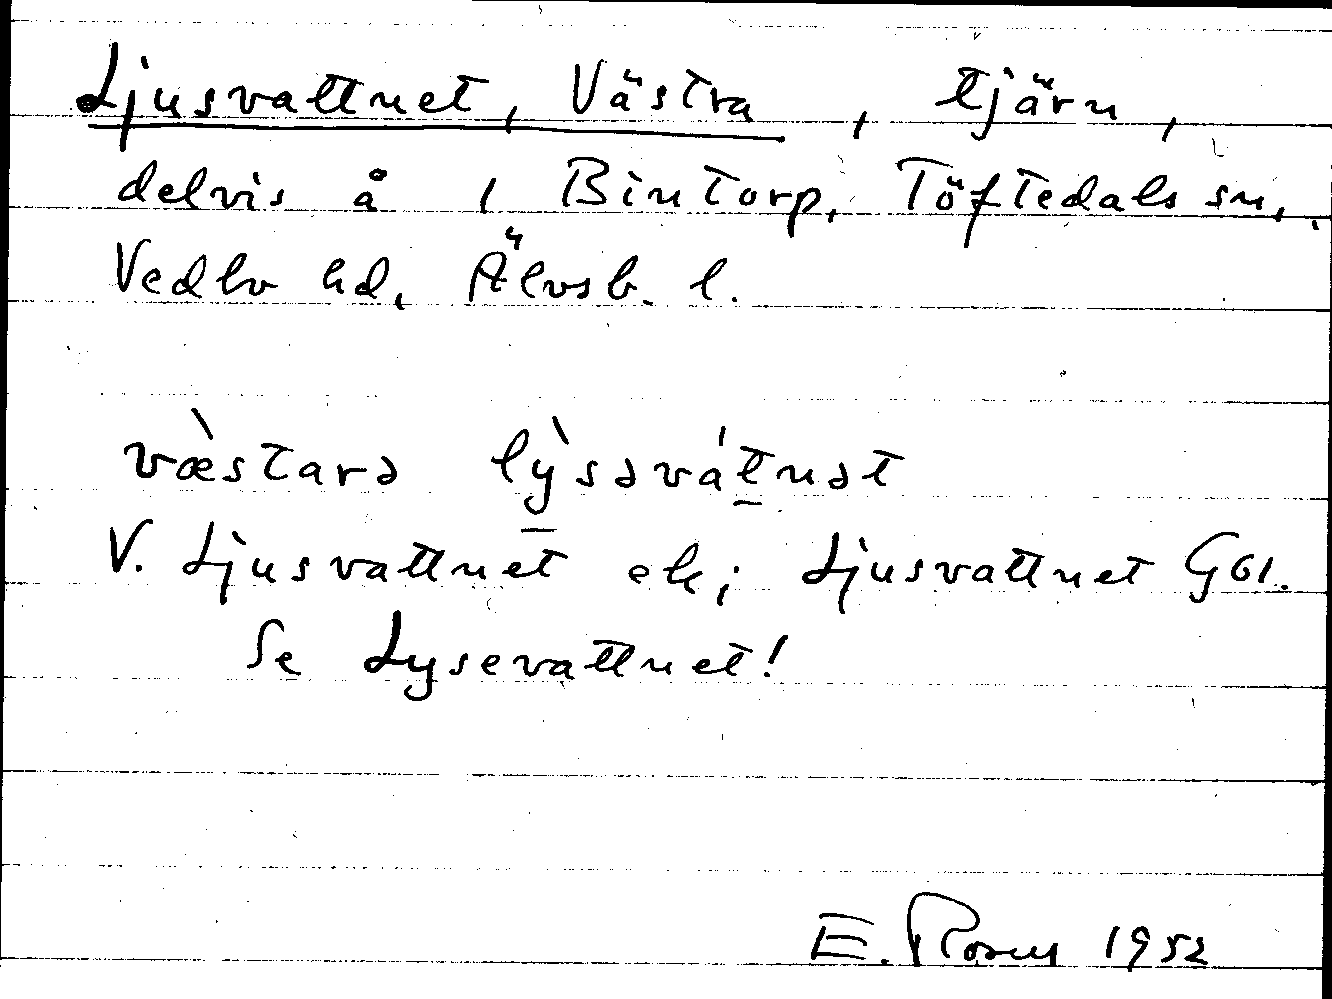 Ljusvattnet, Västra, tjärn,
delvis å 1 Bintorp, Töftedals sn,
Vedbo hd, Älvsb. l.
væ̀starə lỳsəvát̠nət
V. Ljusvattnet ek; Ljusvattnet G61.
Se Lysevattnet!
E. Rosell 1952